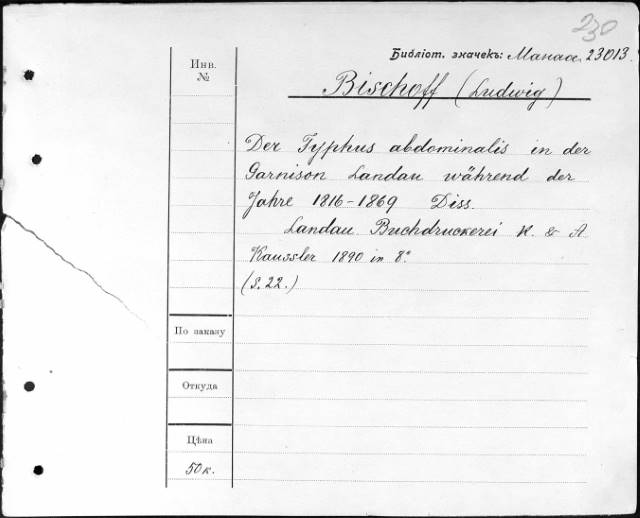 230
Библіот. значекъ: Манасс. 23013.
Инв.
№
Bischoff (Ludwig)
Der Typhus abdominalis in der
Garnison Landau während der
Jahre 1816-1869 Diss.
Landau Buchdruckerei K. & A
Kaussler 1890 in 8°
(S. 22.)
По заказу
Откуда
Цѣна
50 к.